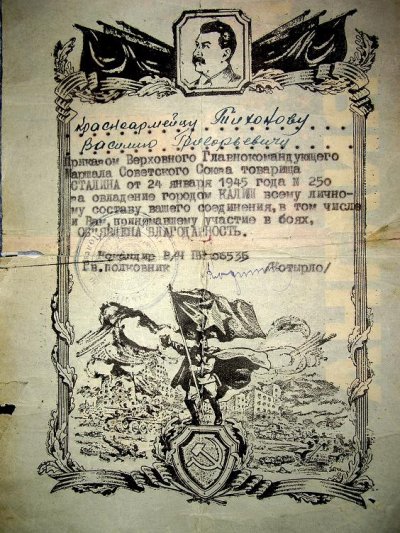 красноармейцу Тихонову
Василию Григорьевичу
Приказом Верховного Главнокомандующего
Маршала Советского Союза товарища
СТАЛИНА от 24 января 1945 года № 250
за овладение городом КАЛИШ всему лично-
му составу вашего соединения, в том числе
и Вам, принимавшему участие в боях,
ОБ'ЯВЛЕНА БЛАГОДАРНОСТЬ.
Командир В/Ч ПП 06535
Гв. полковник /Котырло/